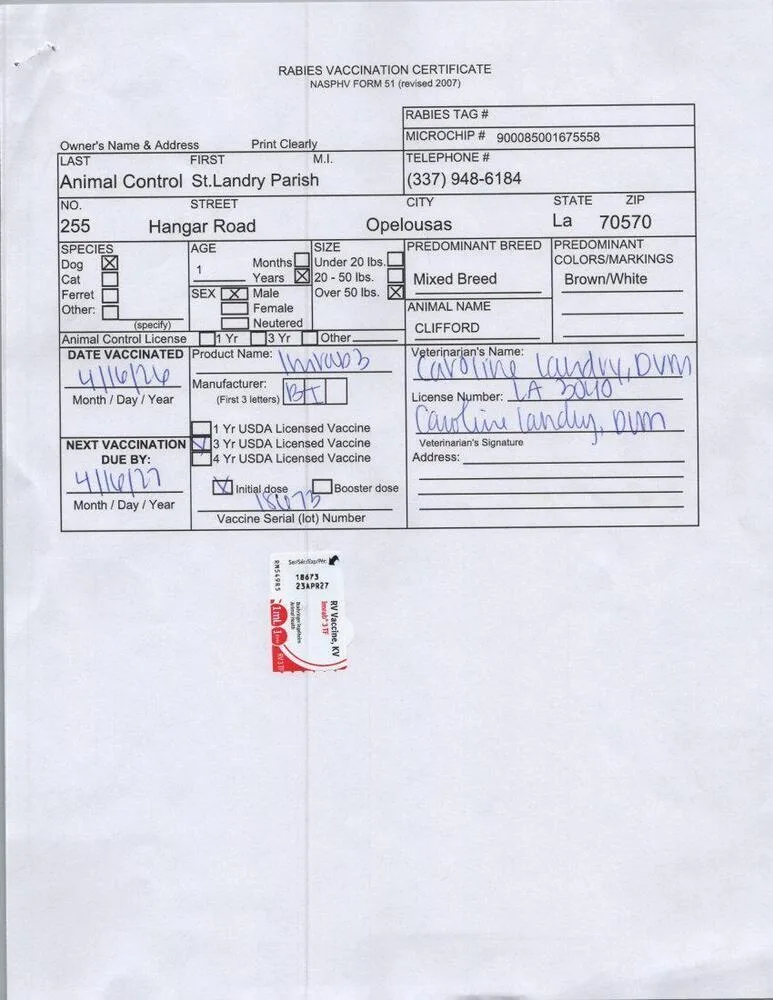 RABIES VACCINATION CERTIFICATE
NASPHV FORM 51 (revised 2007)
RABIES TAG #
MICROCHIP # 900085001675558
Owner's Name & Address Print Clearly
LAST FIRST M.I. TELEPHONE #
Animal Control St.Landry Parish (337) 948-6184
NO. STREET CITY STATE ZIP
255 Hangar Road Opelousas La 70570
SPECIES AGE SIZE PREDOMINANT BREED PREDOMINANT
COLORS/MARKINGS
Dog Months Under 20 lbs.
1
Cat Years 20 - 50 lbs. Mixed Breed Brown/White
Ferret SEX Male Over 50 lbs.
Other: Female ANIMAL NAME
(specify) Neutered CLIFFORD
Animal Control License 1 Yr 3 Yr Other
DATE VACCINATED Product Name: Imrab 3 Veterinarian's Name:
Caroline Landry, DVM
4/16/26 Manufacturer: BI
Month / Day / Year (First 3 letters) License Number: LA 3040
1 Yr USDA Licensed Vaccine Caroline Landry, DVM
NEXT VACCINATION 3 Yr USDA Licensed Vaccine Veterinarian's Signature
DUE BY: 4 Yr USDA Licensed Vaccine Address:
4/16/27
Initial dose Booster dose
Month / Day / Year 18673
Vaccine Serial (lot) Number
Ser/Sér/Exp/Pér:
18673
23APR27
RM549R3
RV Vaccine, KV
Imrab® 3 TF
Boehringer Ingelheim
Animal Health
1 mL